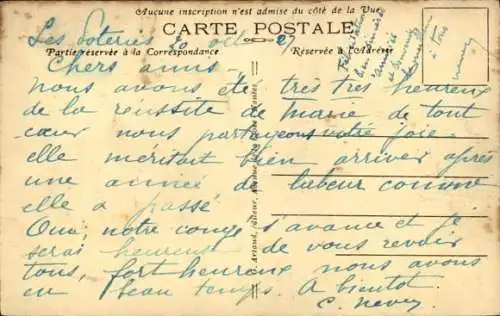 Aucune inscription n'est admise du côté de la Vue
CARTE POSTALE
Partie réservée à la Correspondance
Réservée à l'Adresse
Les Poteries 20 27
Chers amis -
nous avons été très très heureux
de la réussite de Marie de tout
cœur nous partageons votre joie.
elle méritait bien arriver après
une année de labeur comme
elle a passé
Oui, notre congé s'avance et je
serai heureux de vous revoir
tous, fort heureux nous avons
eu beau temps. A bientôt.
Félicitations
amitiés
à tous
Artaud, éditeur, Nantes